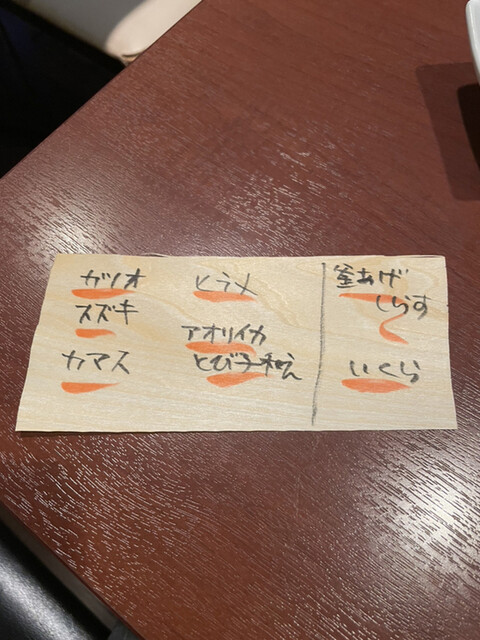 カツオ
スズキ
カマス
ヒラメ
アオリイカ
とび子和え
釜あげ
しらす
いくら